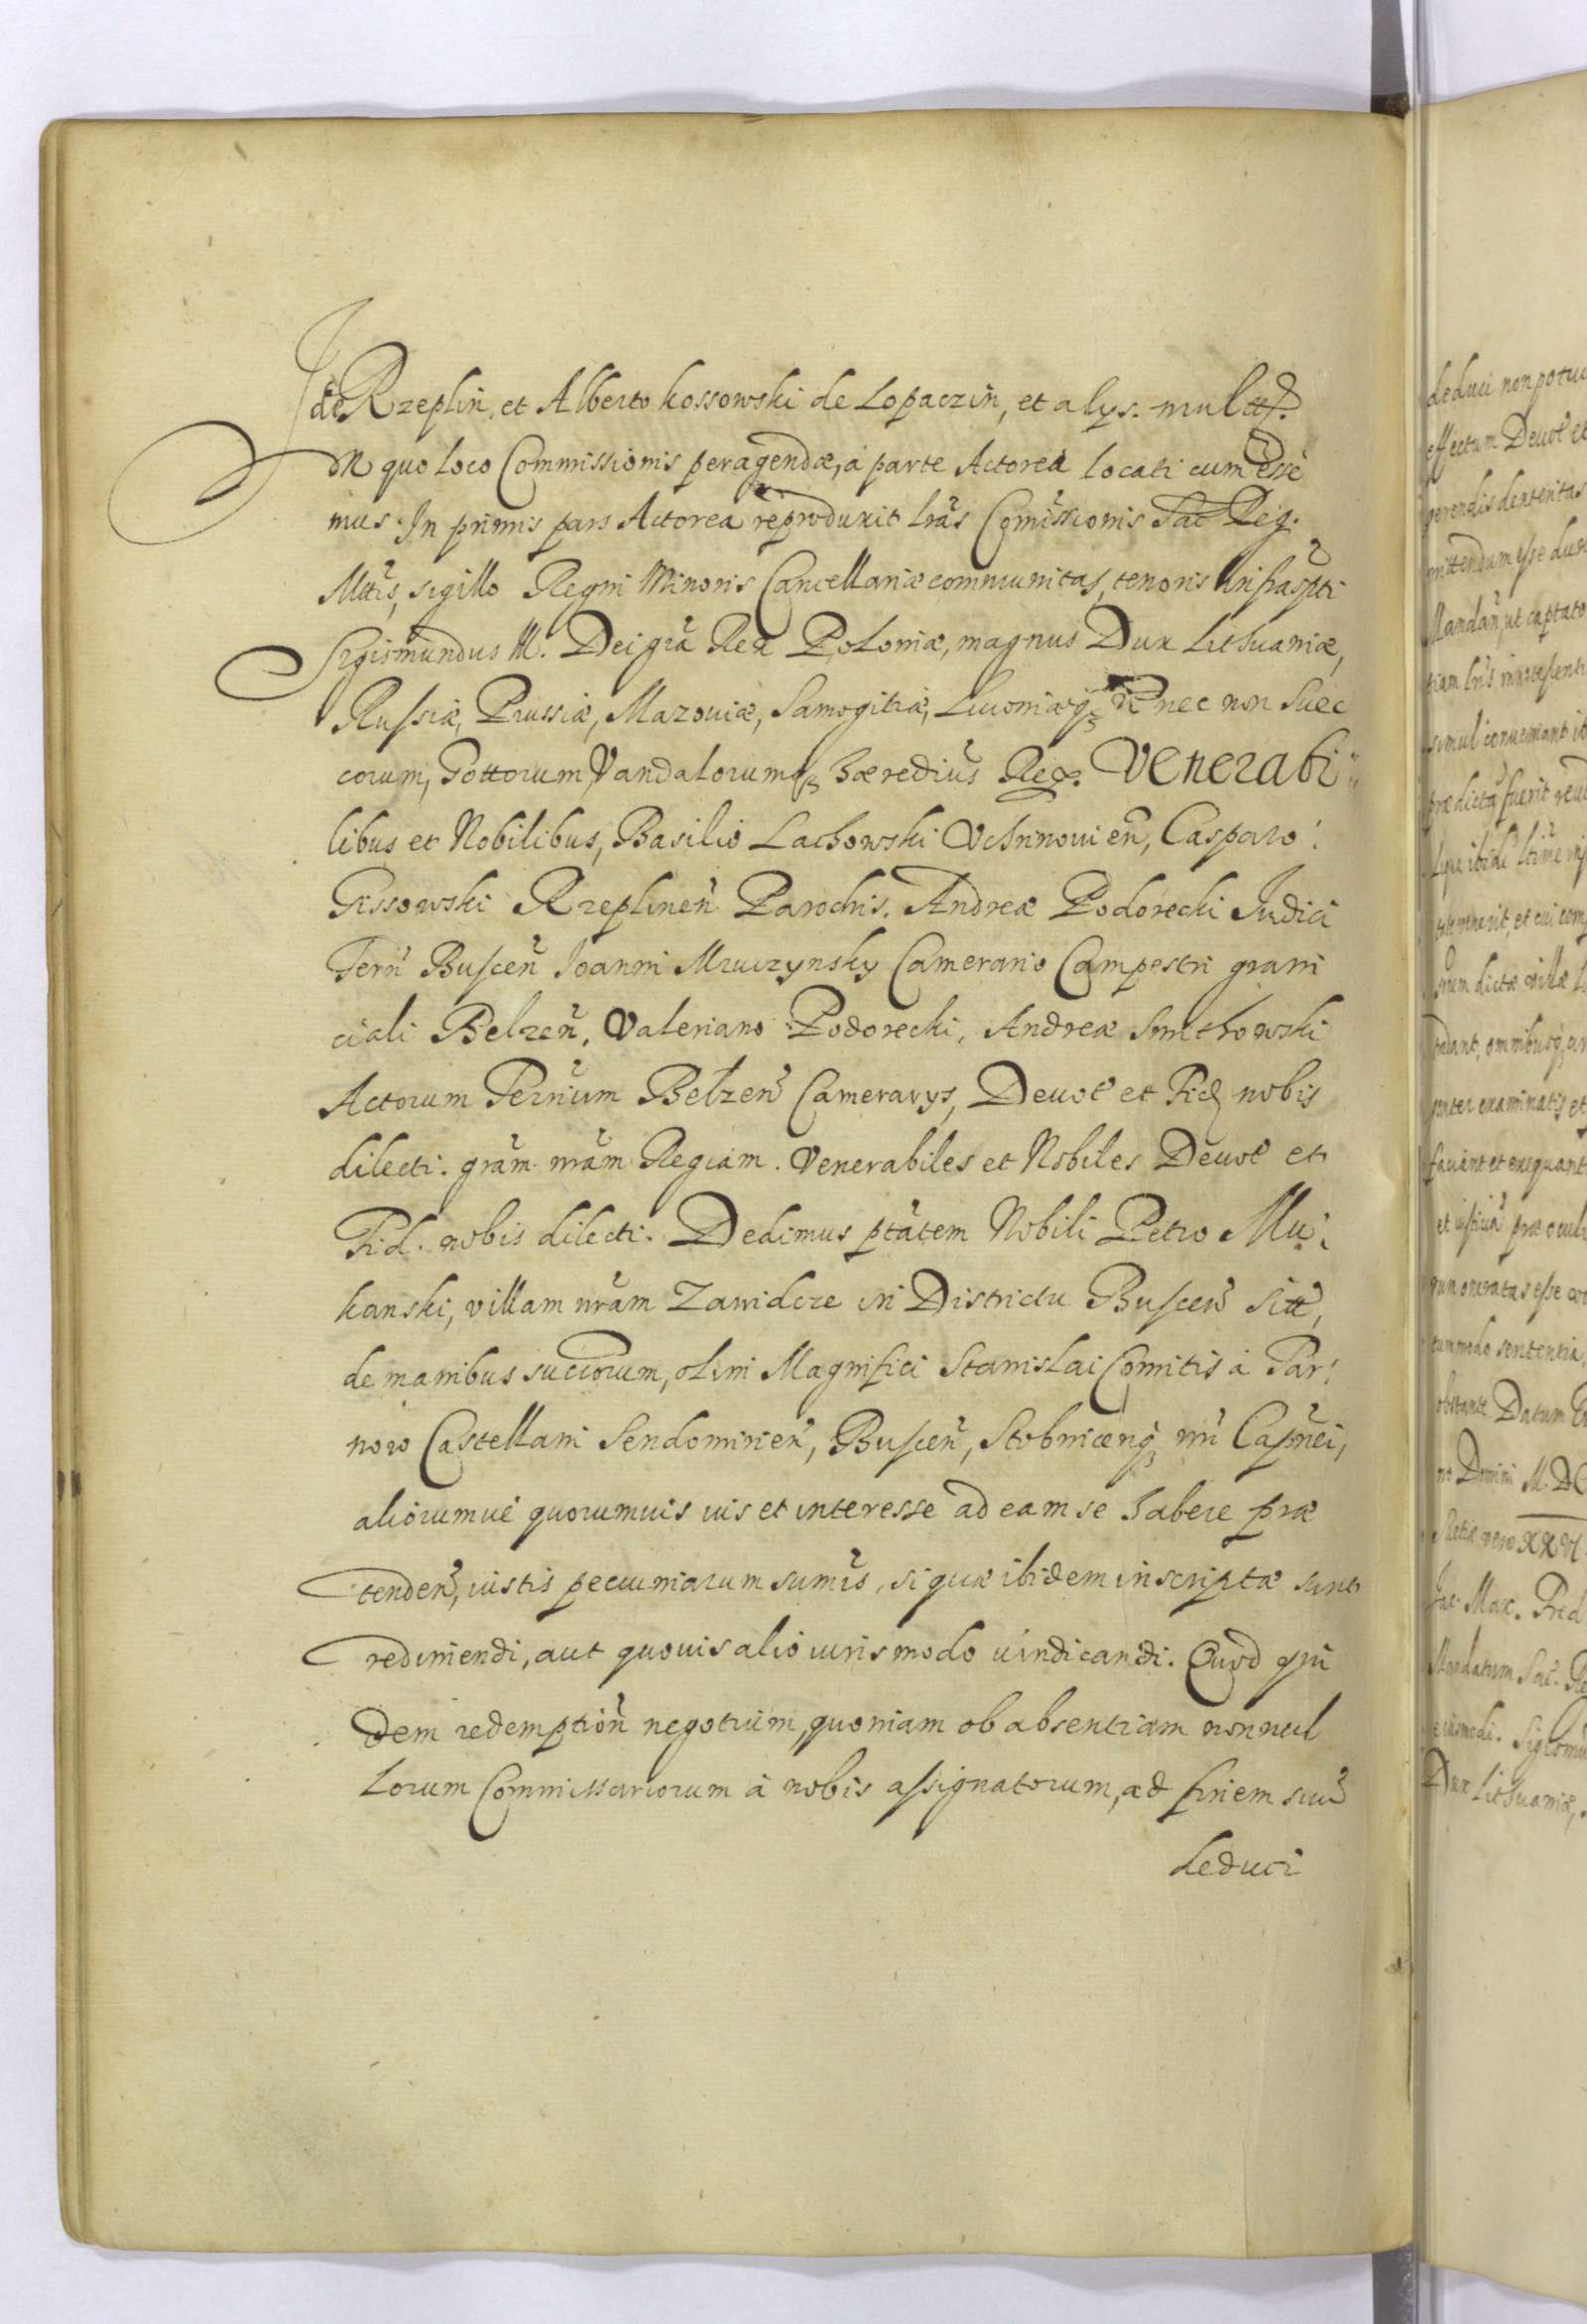 de Rzeplin, et Alberto Kossowski de Lopaczin, et alys. multt.
In quo loco Commissionis peragendæ, à parte Actorea locati cum esse
mus. In primis pars Actorea reproduxit lras Comissionis Sac Reg.
Mttis, sigillo Regni Minoris Cancellariæ communitas, tenoris infrascpti
Sigismundus III. Dei gra Rex Poloniæ, magnus Dux Lithuaniæ,
Russiæ, Prussiæ, Mazoviæ, Samogitiæ, Livoniæq; nec non Suec
corum, Gottorum Vandalorumq; hæredius Rex. Venerabi
libus et Nobilibus, Basilio Lachowski Vchrinovien, Casparo
Gissowski Rzeplinen Parochis. Andreæ Podorecki Judici
Terrn Buscen Joanni Mruczynsky Camerario Campestri grani
ciali Belzen, Valeriano Podorecki, Andreæ Smithowski
Actorum Terrium Belzen Camerarys, Devot et Fid nobis
dilecti. gram nram Regiam. Venerabiles et Nobiles Devot et
Fid. nobis dilecti. Dedimus ptatem Nobili Petro Mu
kanski, villam nram Zawidcze in Districtu Buscen sitt,
de manibus succorum, olim Magnifici Stanislai Comitis à Tar
now Castellani Sendomirien, Buscen, Stobnicenq; nri Capnei,
aliorumve quorumvis ius et interesse ad eam se habere præ
tenden, iustis pecuniarum sumis, si quæ ibidem inscriptæ sunt
redimendi, aut quovis alio iuris modo vindicandi. Quod qui
dem redemption negotium, quoniam ob absentiam nonnul
lorum Commissariorum à nobis assignatorum, ad finem suu
deduci
deduci non potui
effectum Devot et
mittendum esse dux
Mandan, ut captato
simul conveniant
prædicta fuerit
dictæ villæ
omnibusq;
examinatis et
faciant et exequant
oneratas esse
tunmodo sententia
obstante Datum
Domini M. DC
vero XXVI
Mandatum Sac. Re
eiusmodi. Sigismu
Dux Lithuaniæ,